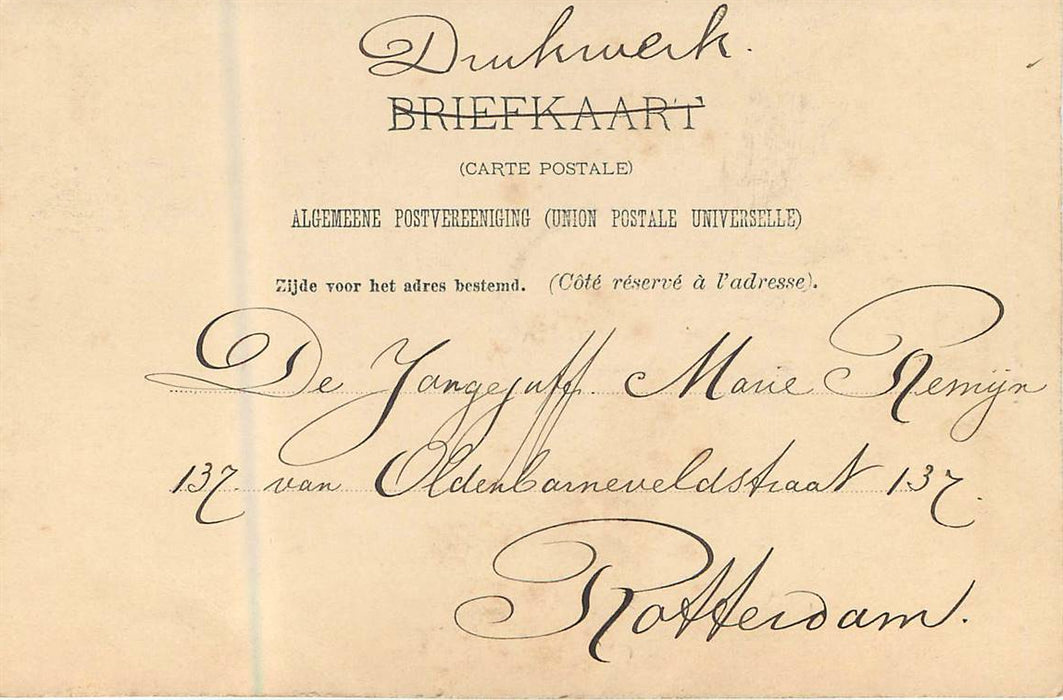 Drukwerk.
BRIEFKAART
(CARTE POSTALE)
ALGEMEENE POSTVEREENIGING (UNION POSTALE UNIVERSELLE)
Zijde voor het adres bestemd. (Côté réservé à l'adresse).
De Jongejuff. Marie Remijn
137 van Oldenbarneveldstraat 137.
Rotterdam.